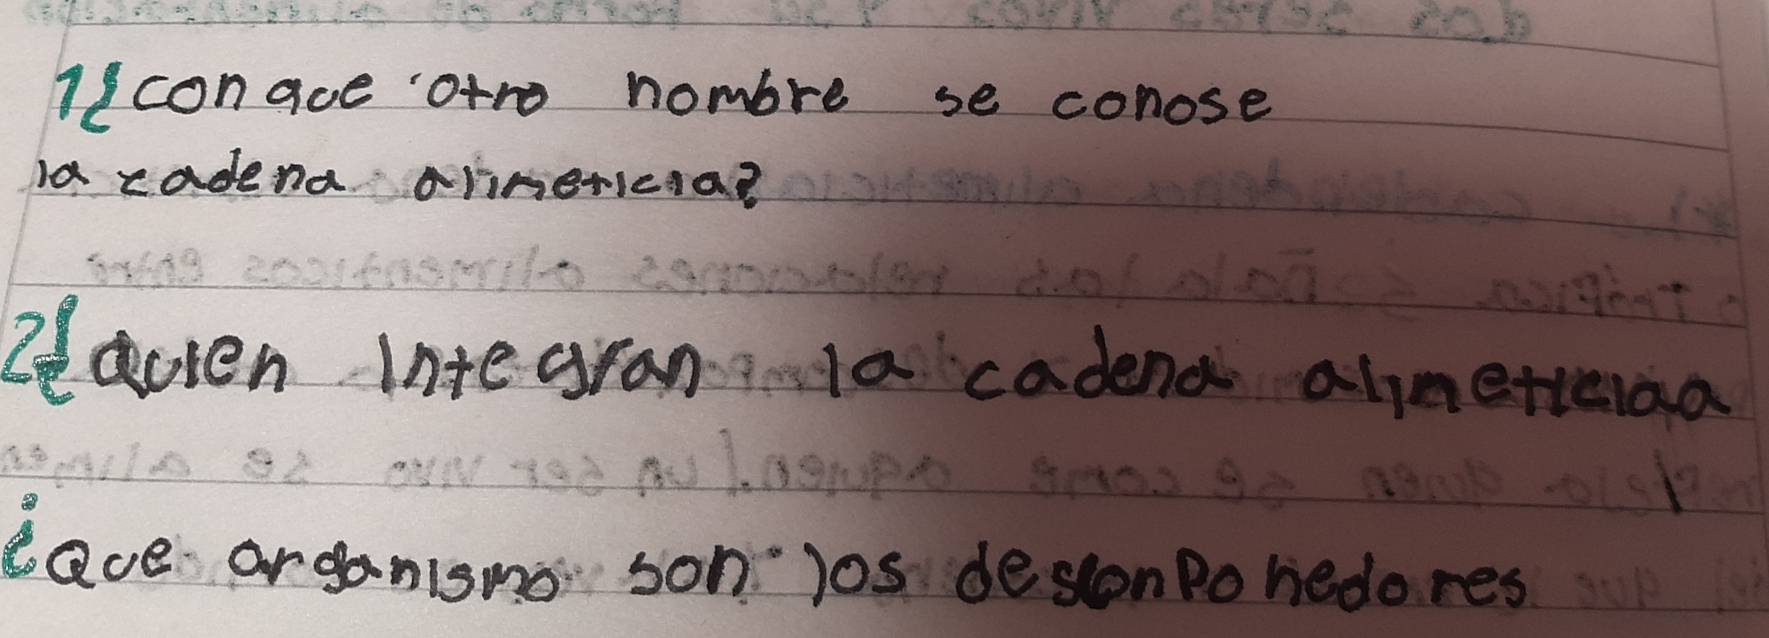 1¿con que otro nombre se conose
la cadena alimeticia?
2¿quien integran la cadena alimeticiaa
¿Que organismo son los desconponedores